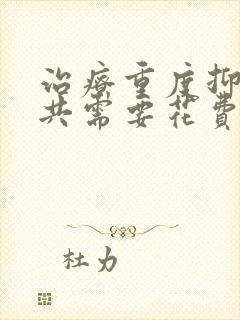 治疗重度抑
共需要花費
杜力